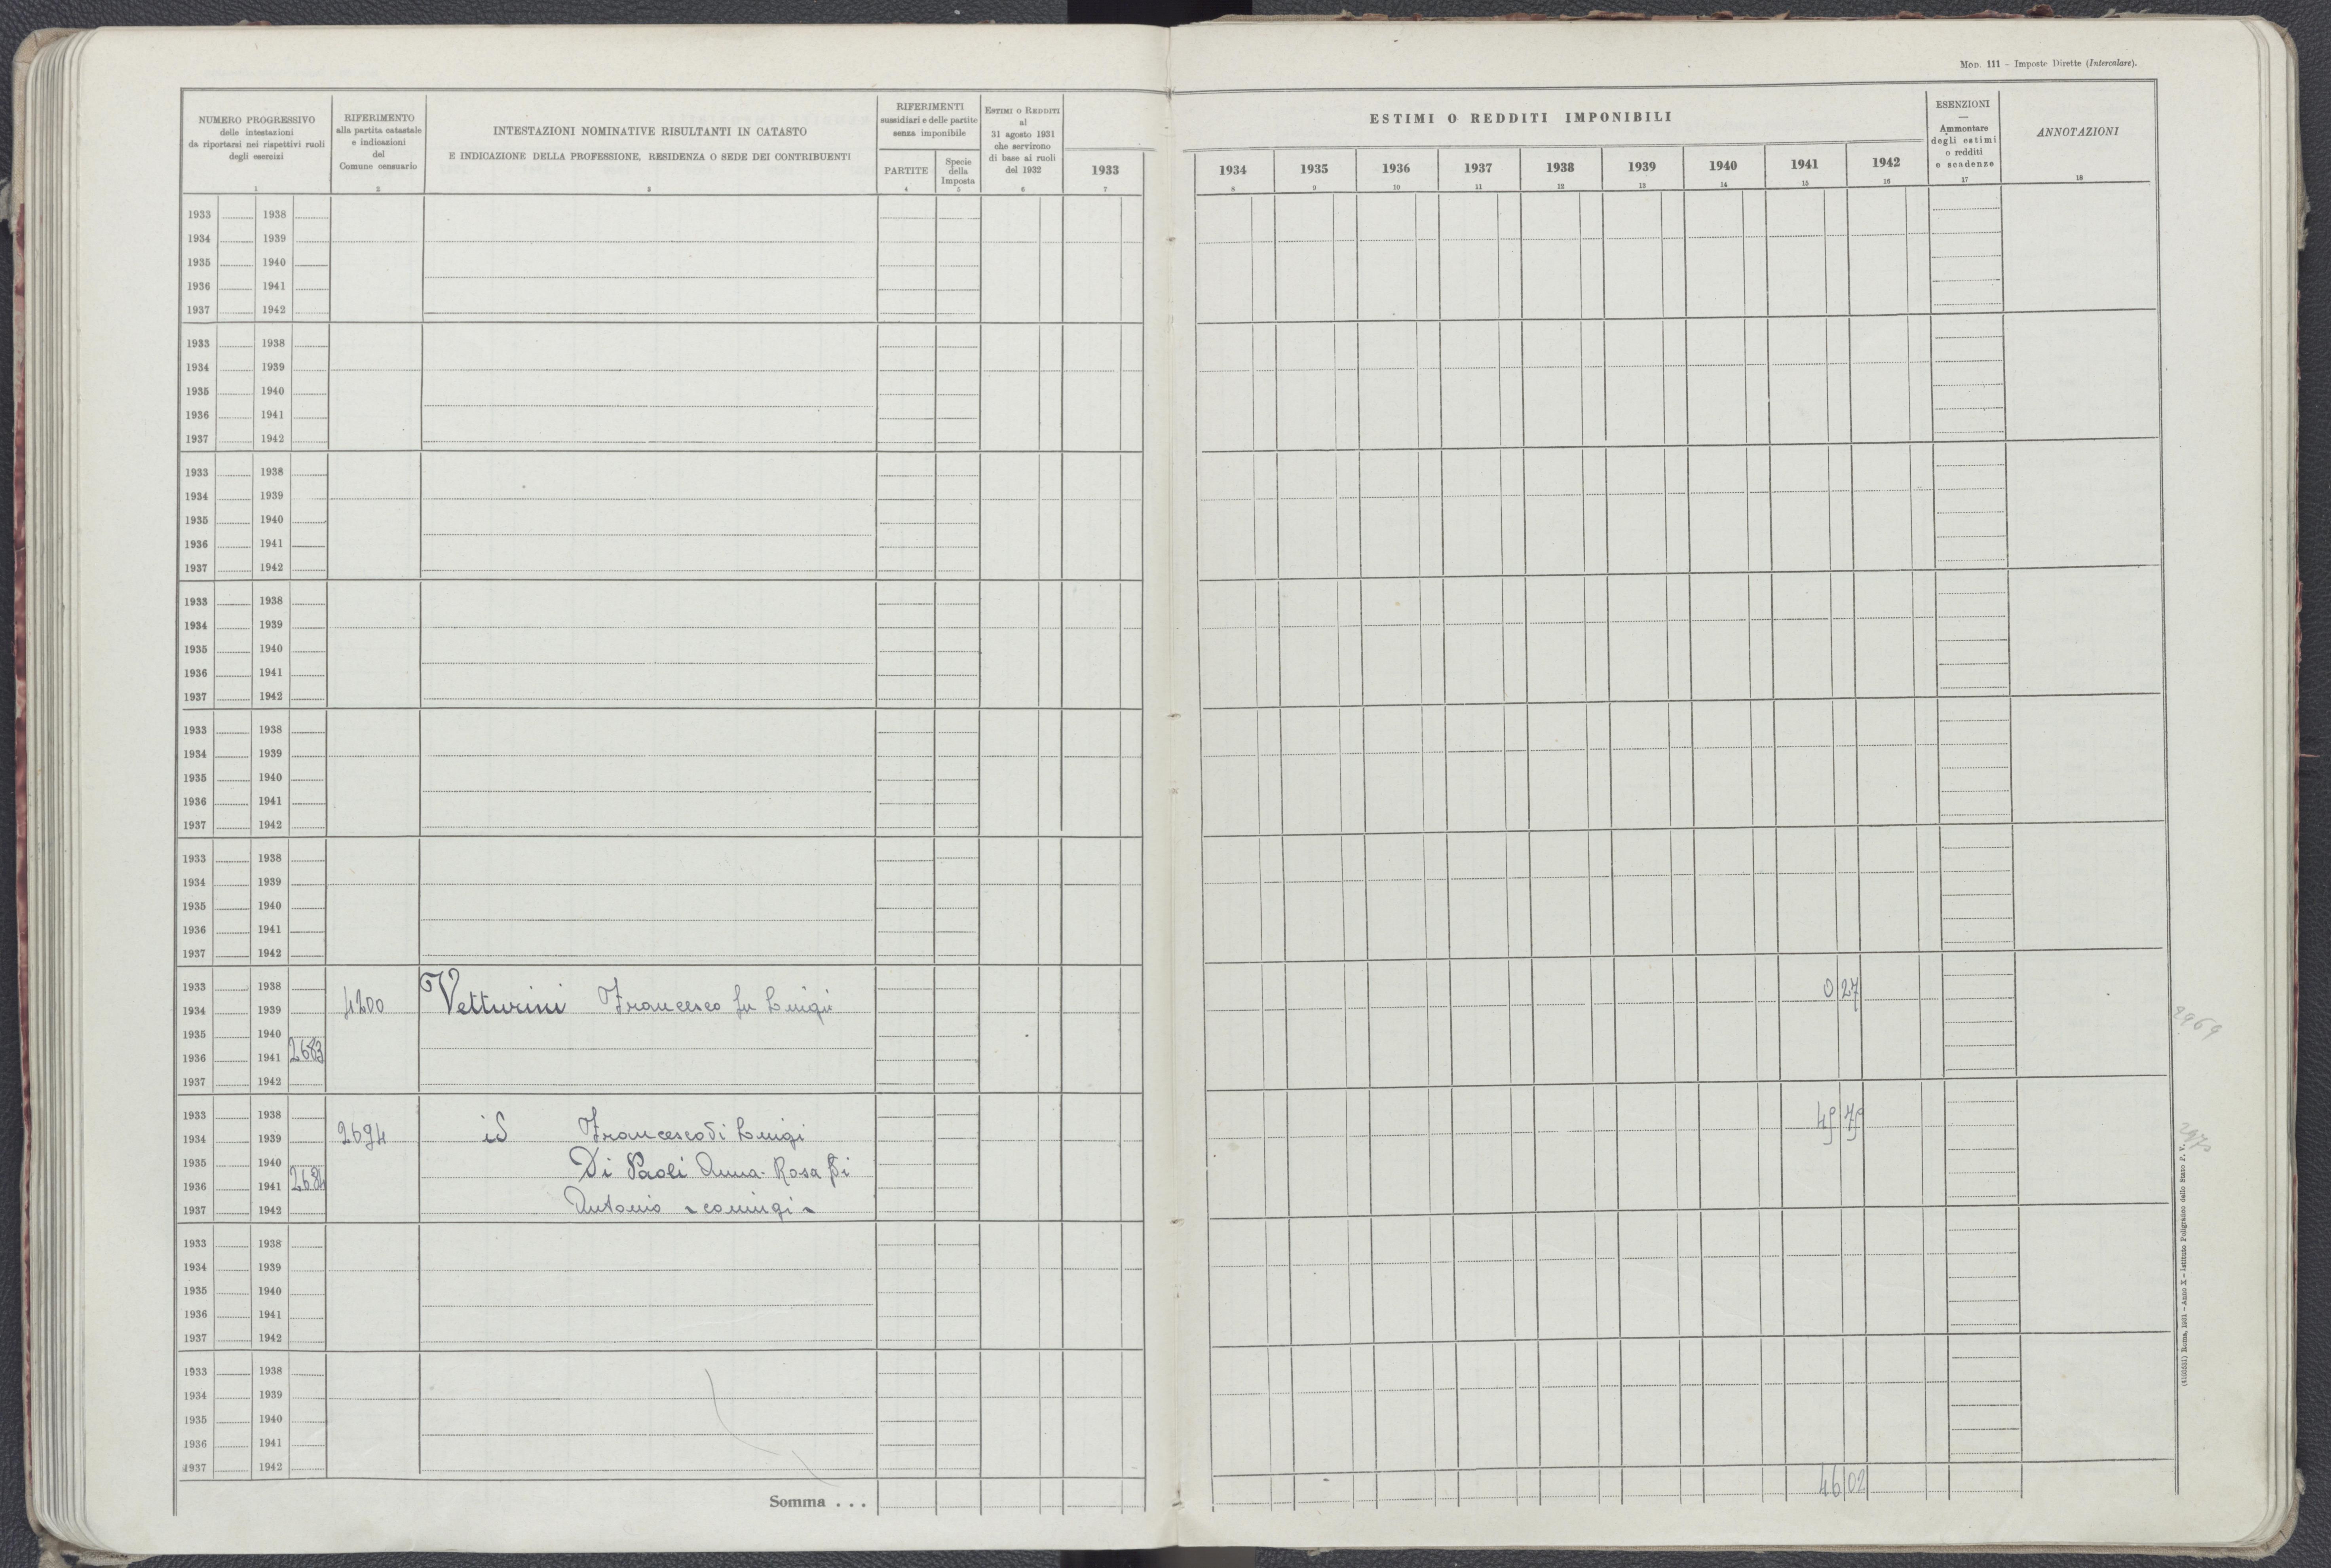 MOD. 111 - Imposte Dirette (Intercalare).
NUMERO PROGRESSIVO
delle intestazioni
da riportarsi nei rispettivi ruoli
degli esercizi
1
RIFERIMENTO
alla partita catastale
e indicazioni
del
Comune censuario
2
INTESTAZIONI NOMINATIVE RISULTANTI IN CATASTO
E INDICAZIONE DELLA PROFESSIONE, RESIDENZA O SEDE DEI CONTRIBUENTI
3
RIFERIMENTI
sussidiari e delle partite
senza imponibile
PARTITE
4
Specie
della
Imposta
5
ESTIMI O REDDITI
al
31 agosto 1931
che servirono
di base ai ruoli
del 1932
6
1933
7
ESTIMI O REDDITI IMPONIBILI
1934 1935 1936 1937 1938 1939 1940 1941 1942
8 9 10 11 12 13 14 15 16
ESENZIONI
—
Ammontare
degli estimi
o redditi
e scadenze
17
ANNOTAZIONI
18
1933 1938
1934 1939
1935 1940
1936 1941
1937 1942
1933 1938
1934 1939
1935 1940
1936 1941
1937 1942
1933 1938
1934 1939
1935 1940
1936 1941
1937 1942
1933 1938
1934 1939
1935 1940
1936 1941
1937 1942
1933 1938
1934 1939
1935 1940
1936 1941
1937 1942
1933 1938
1934 1939
1935 1940
1936 1941
1937 1942
1933 1938 0 27
1934 1939 4200 Vetturini Francesco fu Luigi
1935 1940 2969
1936 1941 2683
1937 1942
1933 1938 45 75
1934 1939 2694 id Francesco di Luigi
1935 1940 Di Paoli Anna-Rosa di
1936 1941 2684
1937 1942 Antonio - coniugi -
1933 1938
1934 1939
1935 1940
1936 1941
1937 1942
1933 1938
1934 1939
1935 1940
1936 1941
1937 1942
Somma . . . 46 02
Roma, 1931 - Anno X - Istituto Poligrafico dello Stato P. V.